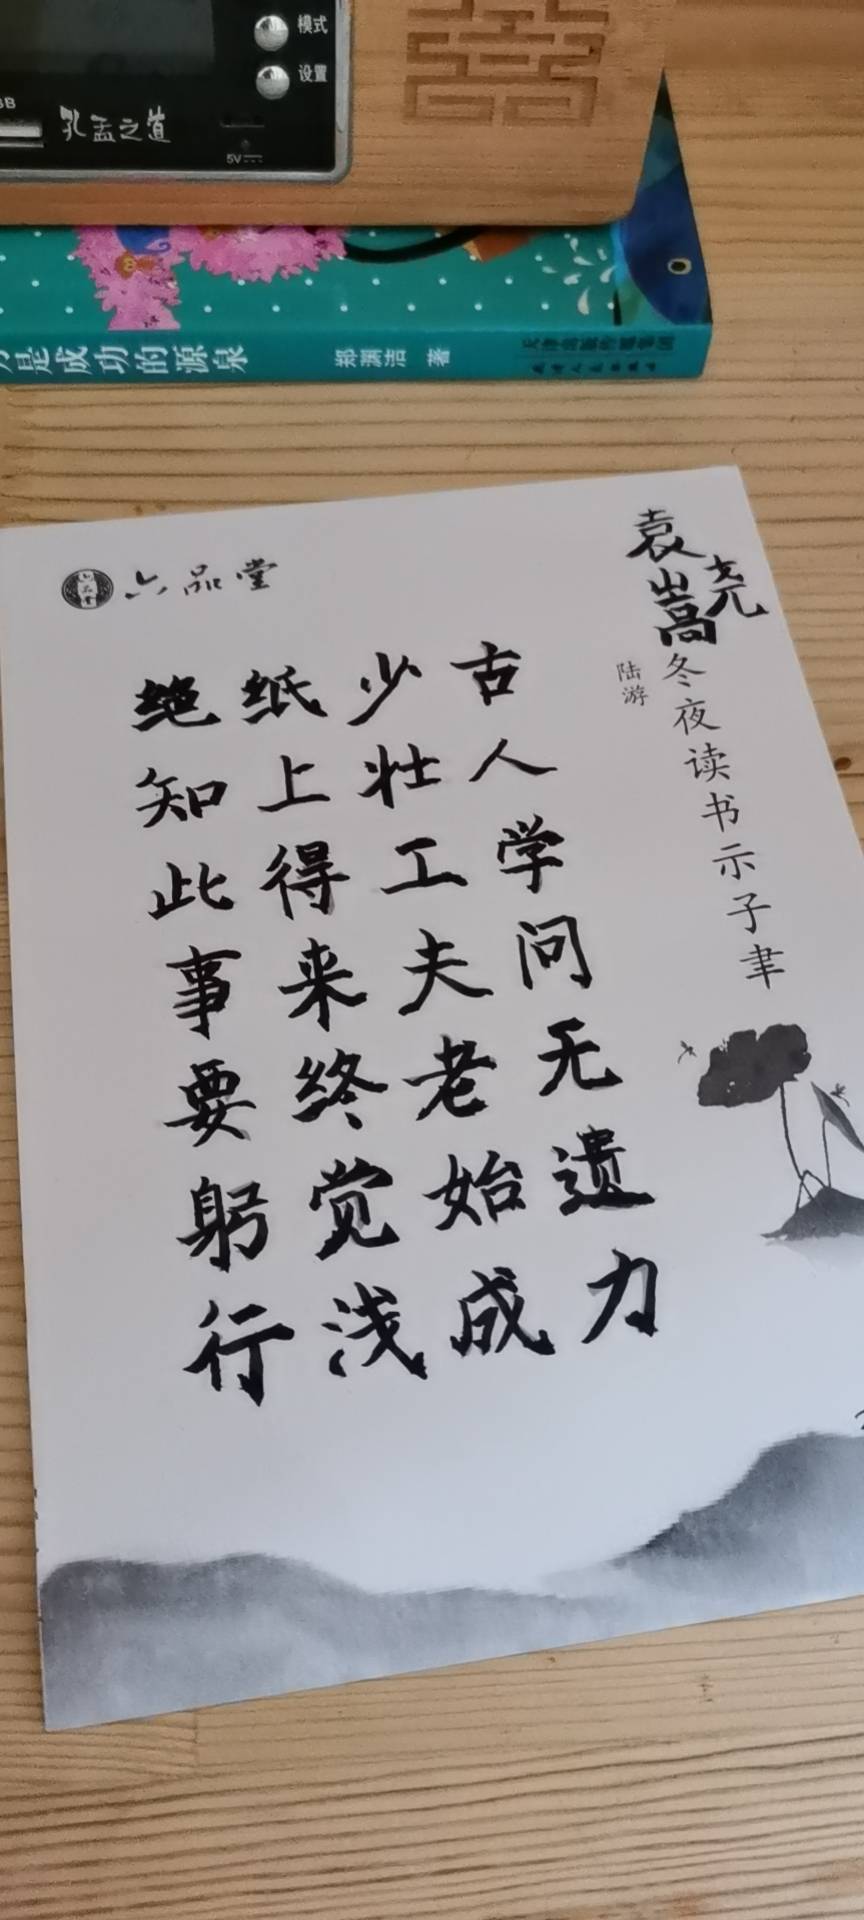 模式
设置
孔孟之道
5V
是成功的源泉
郑渊洁 著
六品堂
袁嵩尧
冬夜读书示子聿
陆游
古人学问无遗力
少壮工夫老始成
纸上得来终觉浅
绝知此事要躬行